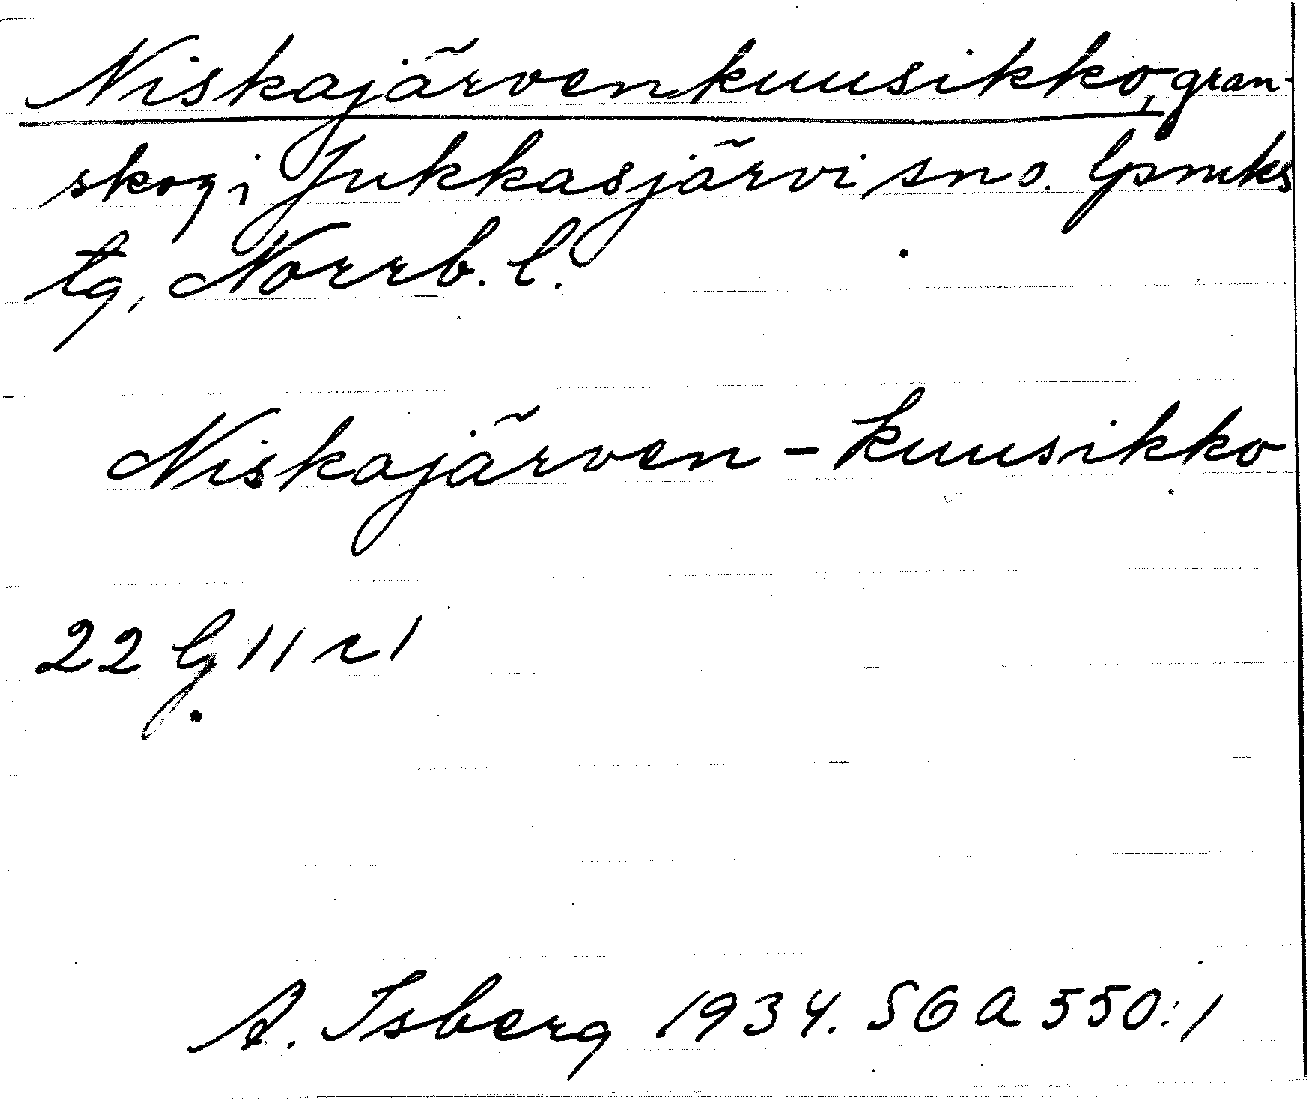 Niskajärvenkuusikko, gran-
skog i Jukkasjärvi sn o. lpmks
tg, Norrb. l.
Niskajärven - kuusikko
22 G 11 r 1
A. Isberg 1934. SOA 550:1